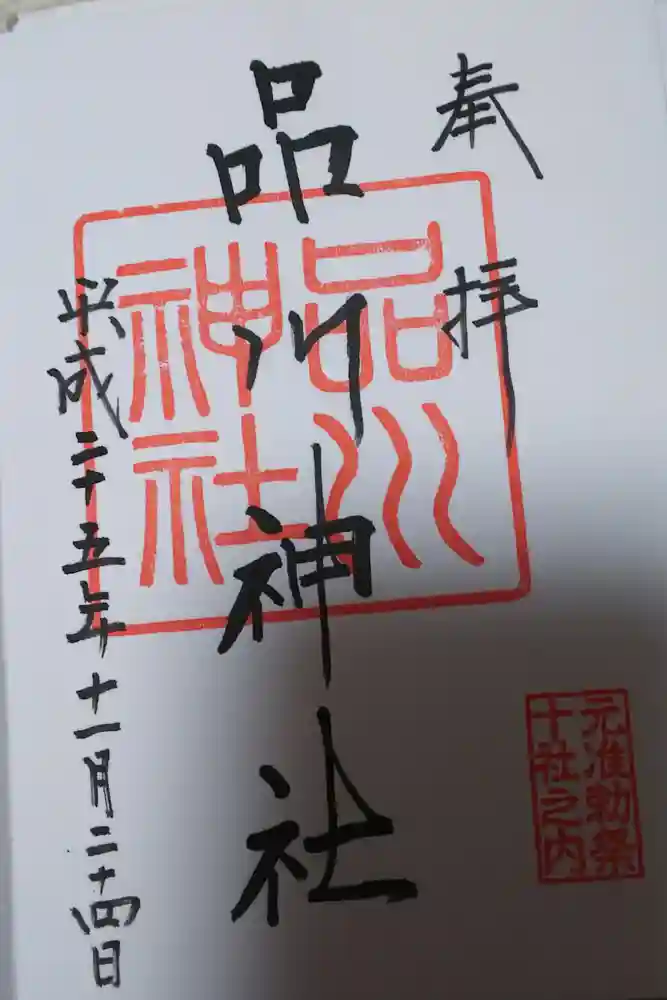 奉拝
品川神社
品川神社
平成二十五年十一月二十四日
元准勅祭
十社之内